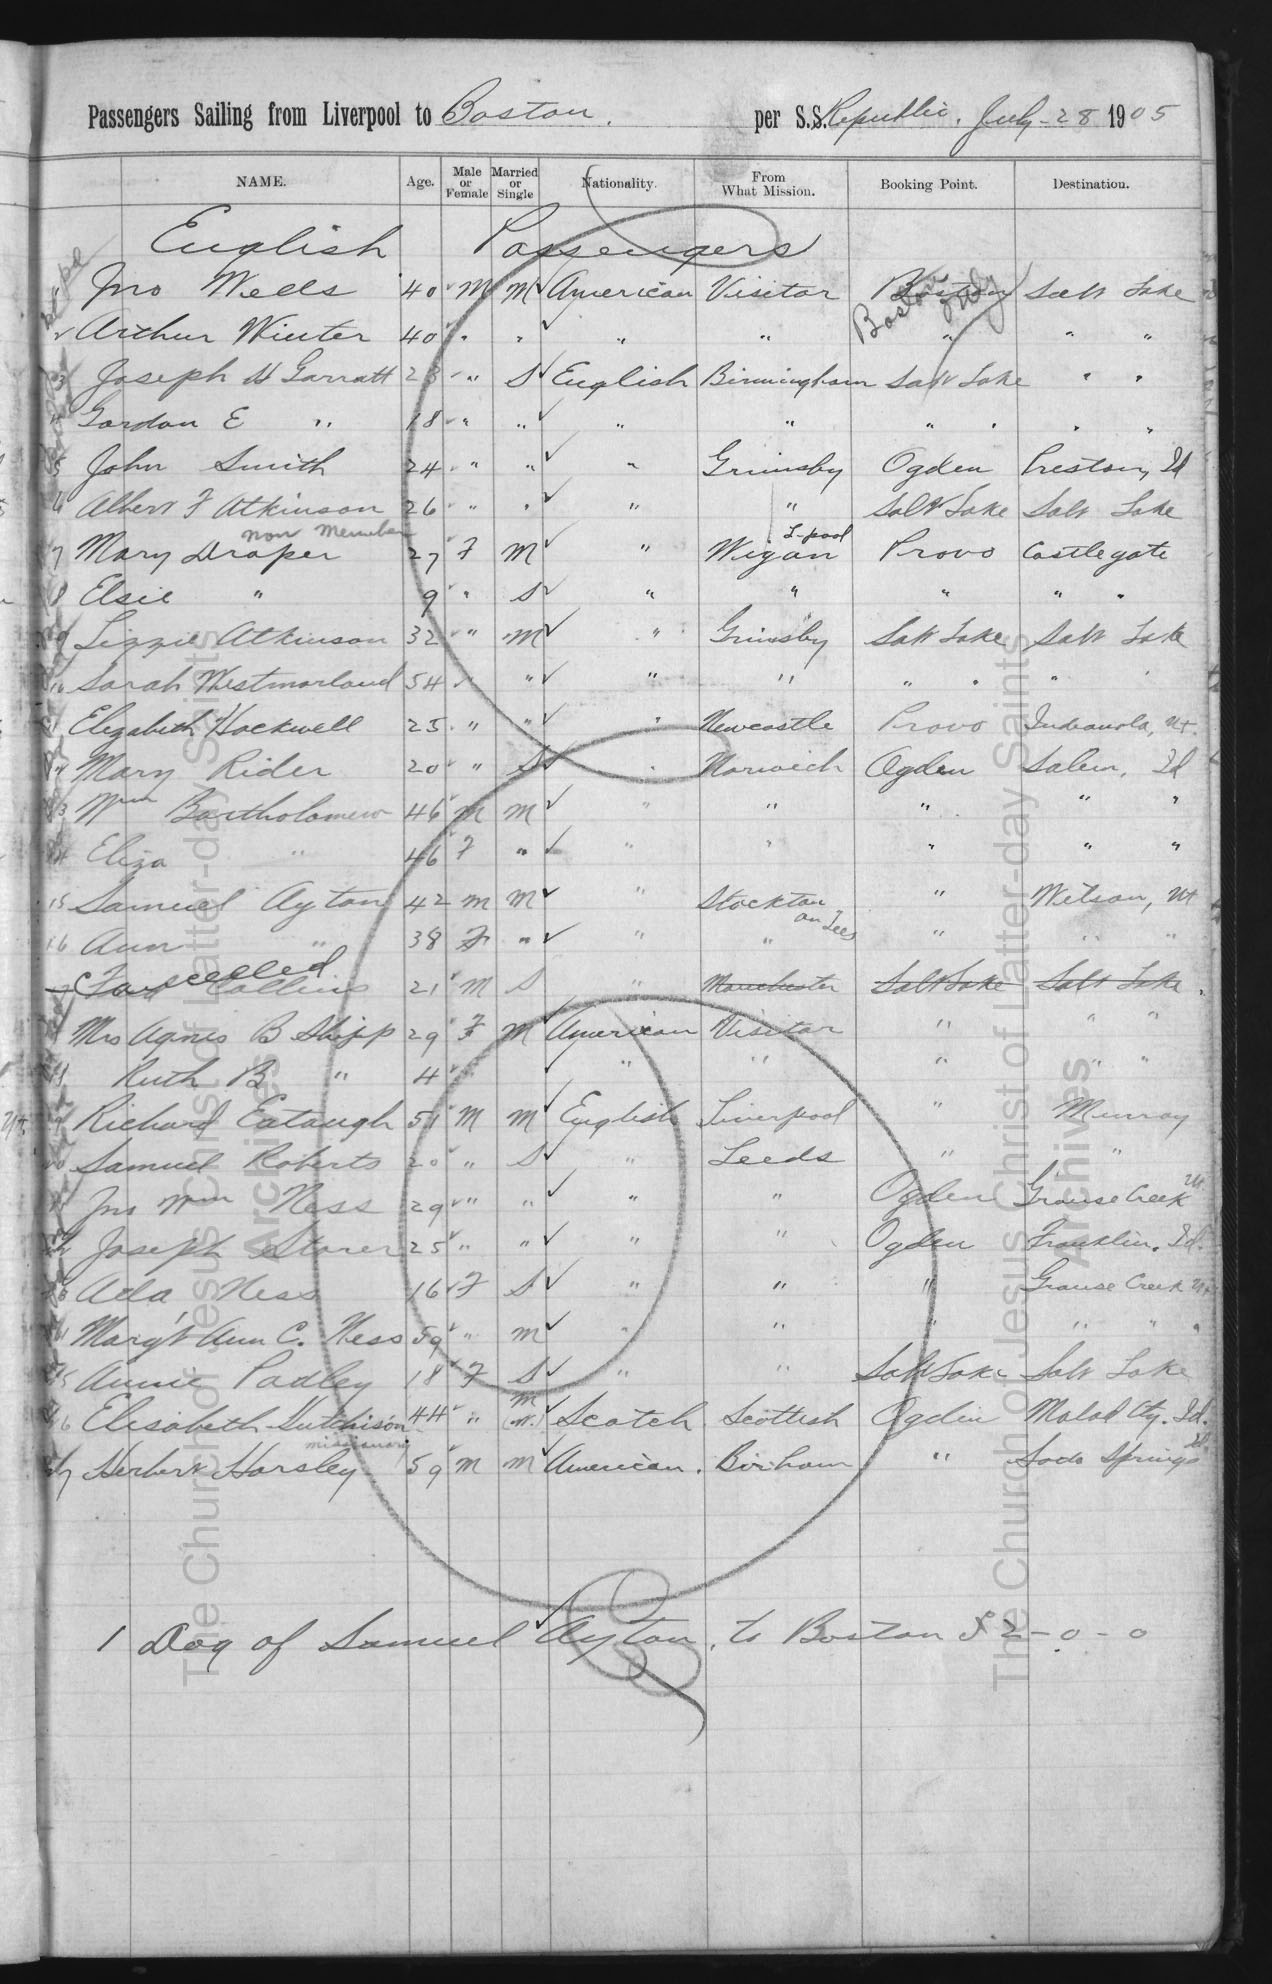 Passengers Sailing from Liverpool to Boston. per S.S. Republic. July 28 1905
NAME. Age. Male or Female Married or Single Nationality. From What Mission. Booking Point. Destination.
English Passengers
Jno Wells 40 M M American Visitor Boston Salt Lake
Boston only
2 Arthur Winter 40 " " " " " " "
3 Joseph H Garratt 23 " S English Birmingham Salt Lake " "
4 Gordon E " 18 " " " " " " " "
5 John Smith 24 " " " Grimsby Ogden Preston, Id
6 Albert F Atkinson 26 " " " " Salt Lake Salt Lake
non Member L-pool
7 Mary Draper 27 F M " Wigan Provo Castlegate
8 Elsie " 9 " S " " " " "
9 Lizzie Atkinson 32 " M " Grimsby Salt Lake Salt Lake
10 Sarah Westmorland 54 " " " " " " "
11 Elizabeth Hockwell 25 " " " Newcastle Provo Indianola, Ut.
12 Mary Rider 20 " S " Norwich Ogden Salem, Id
13 Wm Bartholomew 46 M M " " " " "
14 Eliza " 46 F " " " " " "
15 Samuel Ayton 42 M M " Stockton on Tees " Wilson, Ut
16 Ann " 38 F " " " " " "
Cancelled
Collins 21 M S " Manchester Salt Lake Salt Lake
Mrs Agnes B Shipp 29 F M American Visitor " " "
Ruth B " 4 " " " " " "
Richard Eatough 51 M M English Liverpool " Murray
Samuel Roberts 20 " S " Leeds " "
Jno Wm Ness 29 " " " " Ogden Grouse Creek Ut
Joseph Storer 25 " " " " Ogden Franklin, Id.
Ada Ness 16 F S " " " Grouse Creek Ut.
Marg't Ann C. Ness 59 " M " " " " " "
25 Annie Padley 18 F S " " Salt Lake Salt Lake
26 Elisabeth Hutchison 44 " M (W.) Scotch Scottish Ogden Malad Cty. Id.
missionary
27 Herbert Horsley 59 M M American. Birham " Soda Springs Id
1 Dog of Samuel Ayton, to Boston £2-0-0
The Church of Jesus Christ of Latter-day Saints
Archives
The Church of Jesus Christ of Latter-day Saints
Archives